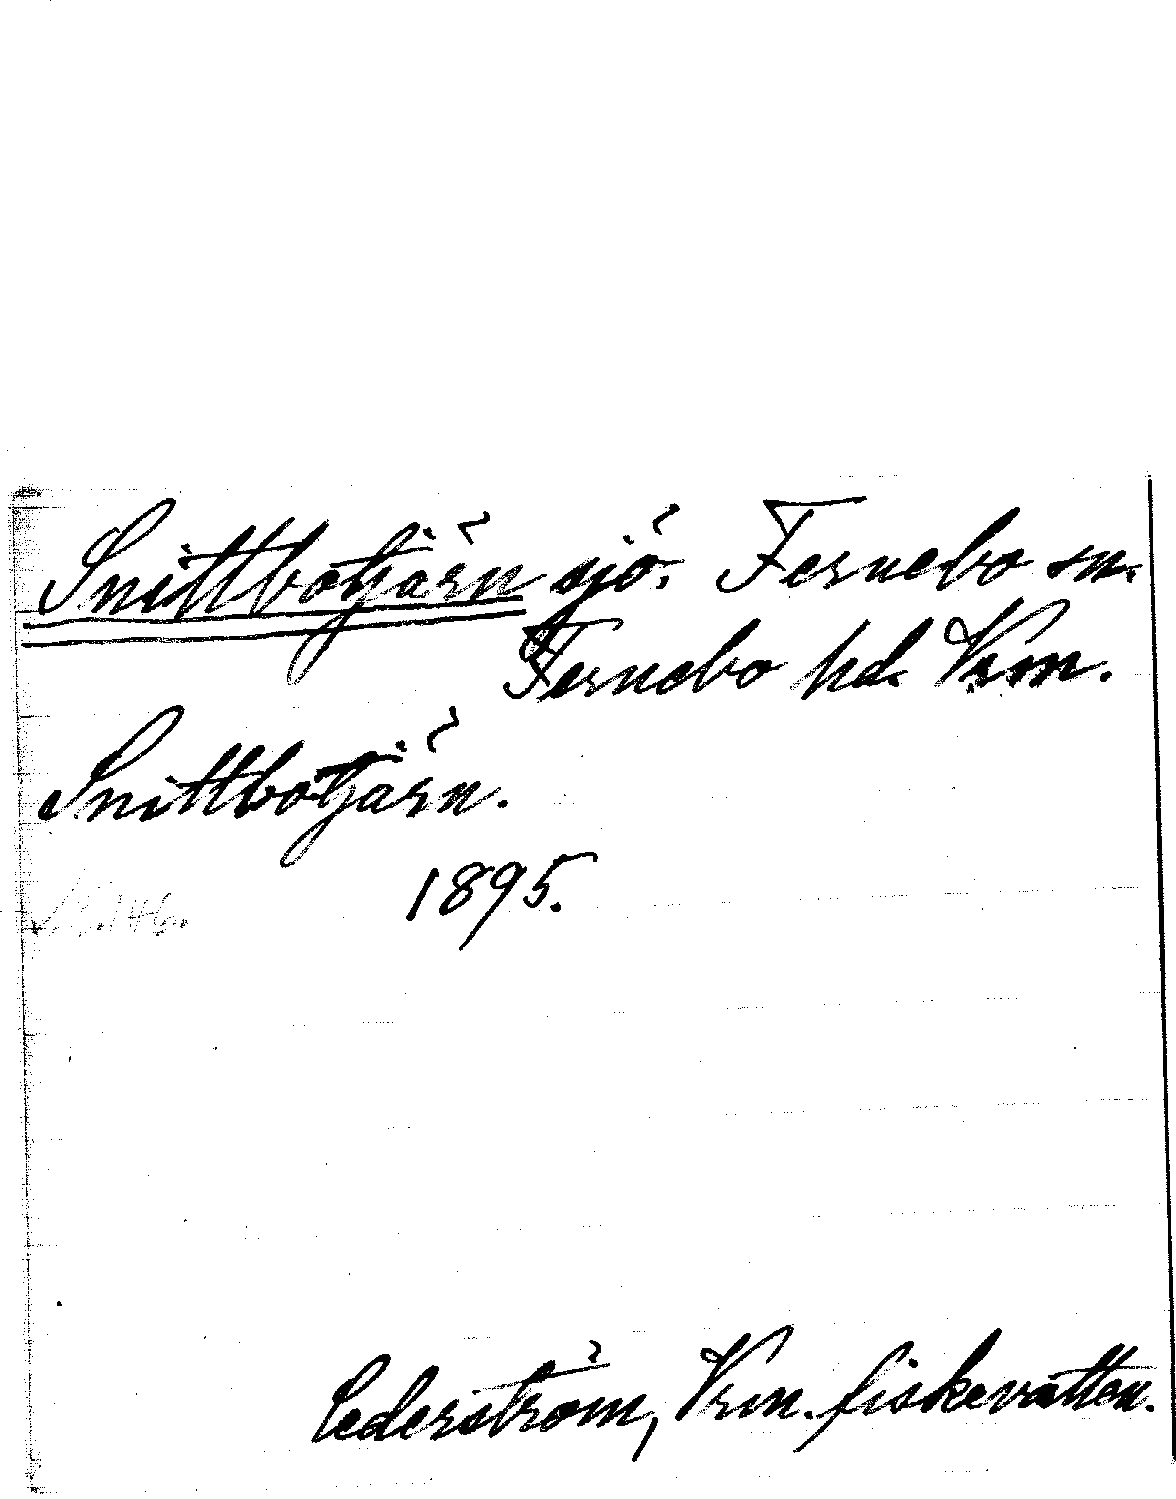 Snittbotjärn sjö. Fernebo sn.
Fernebo hd. Vrm.
Snittbotjärn.
1895.
S. 146.
Cederström, Vrm. fiskevatten.